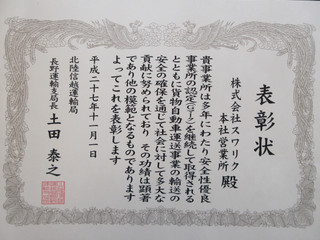 表彰状
株式会社スワリク
本社営業所 殿
貴事業所は多年にわたり安全性優良
事業所の認定(Gマーク)を継続して取得される
とともに貨物自動車運送事業の輸送の
安全の確保を通じて社会に対して多大な
貢献に努められており その功績は顕著
であり他の模範となるものであります
よってこれを表彰します
平成二十七年十一月一日
北陸信越運輸局
長野運輸支局長 土田 泰之